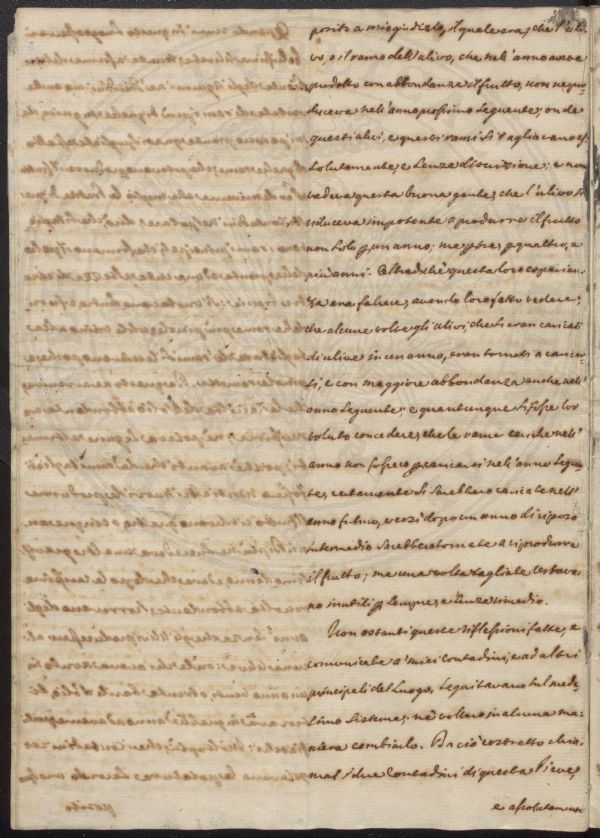 posito a mio giudizio, il quale era, che l'uli-
vo, o il ramo dell'ulivo, che nell'anno aveva
prodotto con abbondanza il frutto, non ne pro-
duceva nell'anno prossimo seguente; onde
questi ulivi, e questi rami si tagliavano as-
solutamente, e senza discrizione; e non
vedeva questa buona gente, che l'ulivo si
riduceva impotente a produrre il frutto
non solo p un anno, ma p tre, p quattro, e
più anni. Oltradichè questa loro esperien-
za era fallace, avendo loro fatto vedere,
che alcune volte gli ulivi, che si eran caricati
di ulive in un anno, eran tornati a caricar-
si, e con maggiore abbondanza anche nell'
anno seguente; e quantunque si fosse lor
voluto concedere, che le rame cariche nell'
anno non fossero p caricarsi nell'anno segue-
te, certamente si sarebbero caricate nell'
anno futuro, e così dopo un anno di riposo
intermedio sarebbero tornate a riprodurre
il frutto; ma una volta tagliate restava-
no inutili p sempre, e senza rimedio.
Non ostanti queste riflessioni fatte, e
comunicate a' miei contadini, e ad altri
principali del Luogo, seguitavano sul med-
esimo sistema; nè vollero in alcuna ma-
niera cambiarlo. Perciò costretto chia-
mai i due Contadini di questa Pieve,
e assolutamen-